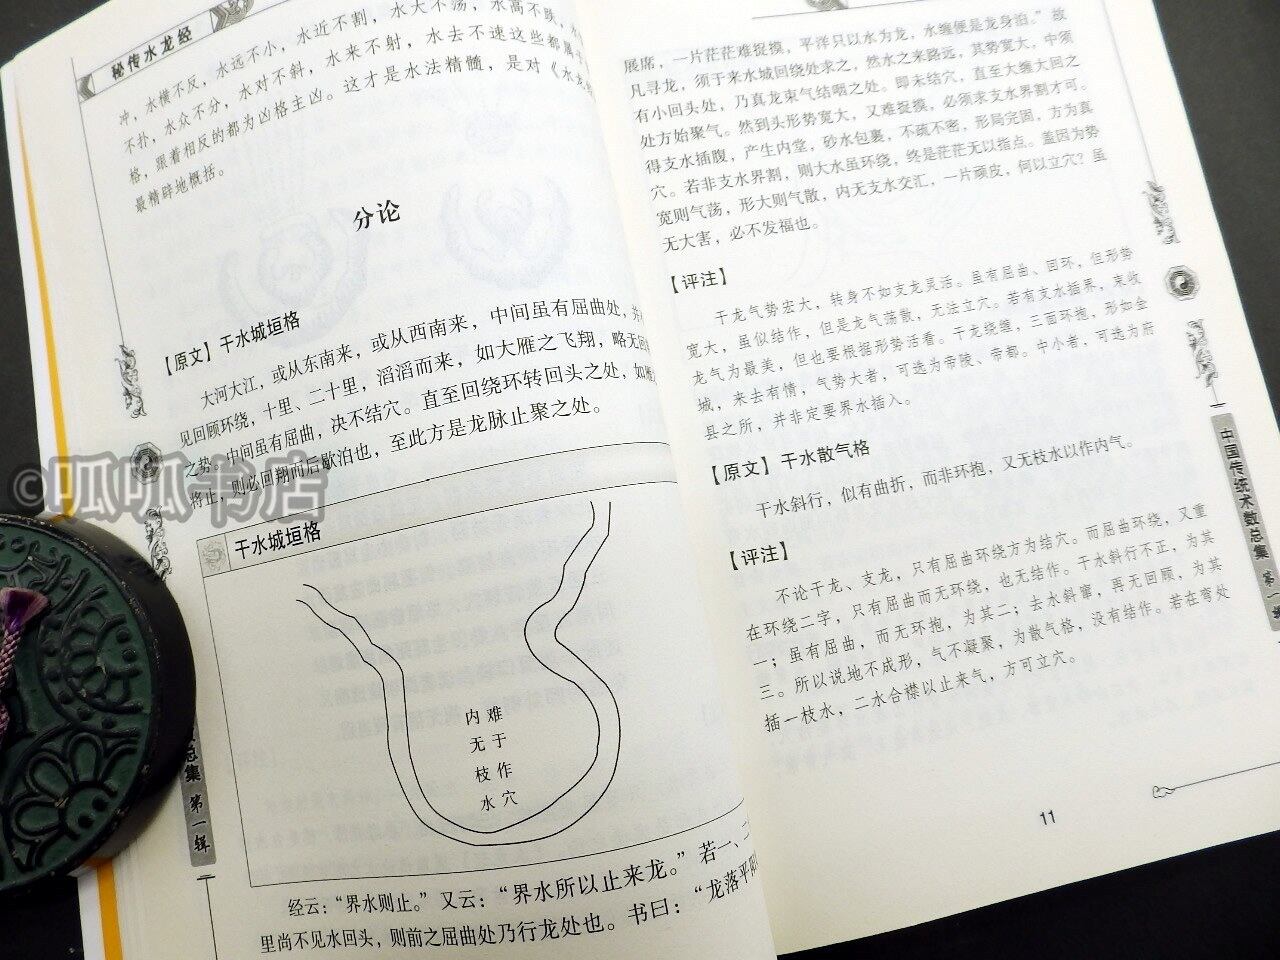 秘传水龙经
冲，水横不反，水远不小，水近不割，水大不荡，水高不跌，
不扑，水众不分，水对不斜，水来不射，水去不速这些都属
格，跟着相反的都为凶格主凶。这才是水法精髓，是对《水龙
最精辟地概括。
分论
【原文】干水城垣格
大河大江，或从东南来，或从西南来，中间虽有屈曲处，
见回顾环绕，十里、二十里，滔滔而来，如大雁之飞翔，略无回
之势。中间虽有屈曲，决不结穴。直至回绕环转回头之处，如
将止，则必回翔而后歇泊也，至此方是龙脉止聚之处。
干水城垣格
内 难
无 于
枝 作
水 穴
经云：“界水则止。”又云：“界水所以止来龙。”若一、二
里尚不见水回头，则前之屈曲处乃行龙处也。书曰：“龙落平
总集 第一辑
©呱呱书店
展席，一片茫茫难捉摸，平洋只以水为龙，水缠便是龙身泊。”故
凡寻龙，须于来水城回绕处求之，然水之来路远，其势宽大，中须
有小回头处，乃真龙束气结咽之处。即未结穴，直至大缠大回之
处方始聚气。然到头形势宽大，又难捉摸，必须求支水界割才可。
得支水插腹，产生内堂，砂水包裹，不疏不密，形局完固，方为真
穴。若非支水界割，则大水虽环绕，终是茫茫无以指点。盖因为势
宽则气荡，形大则气散，内无支水交汇，一片顽皮，何以立穴？虽
无大害，必不发福也。
【评注】
干龙气势宏大，转身不如支龙灵活。虽有屈曲、回环，但形势
宽大，虽似结作，但是龙气荡散，无法立穴。若有支水插界，束收
龙气为最美，但也要根据形势活看。干龙绕缠，三面环抱，形如金
城，来去有情，气势大者，可选为帝陵、帝都。中小者，可选为府
县之所，并非定要界水插入。
【原文】干水散气格
干水斜行，似有曲折，而非环抱，又无枝水以作内气。
【评注】
不论干龙、支龙，只有屈曲环绕方为结穴。而屈曲环绕，又重
在环绕二字，只有屈曲而无环绕，也无结作。干水斜行不正，为其
一；虽有屈曲，而无环抱，为其二；去水斜窜，再无回顾，为其
三。所以说地不成形，气不凝聚，为散气格，没有结作。若在弯处
插一枝水，二水合襟以止来气，方可立穴。
中国传统术数总集 第一辑
11